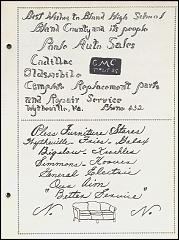 Best Wishes to Bland High School
Bland County and its people
Auto Sales
Cadillac
GMC
Oldsmobile
Complete Replacement parts
and Repair Service
Wytheville, Va. Phone 232
Furniture Stores
Wytheville Galax
Bigelow
Simmons Hoover
General Electric
Our Aim
"Better Service"